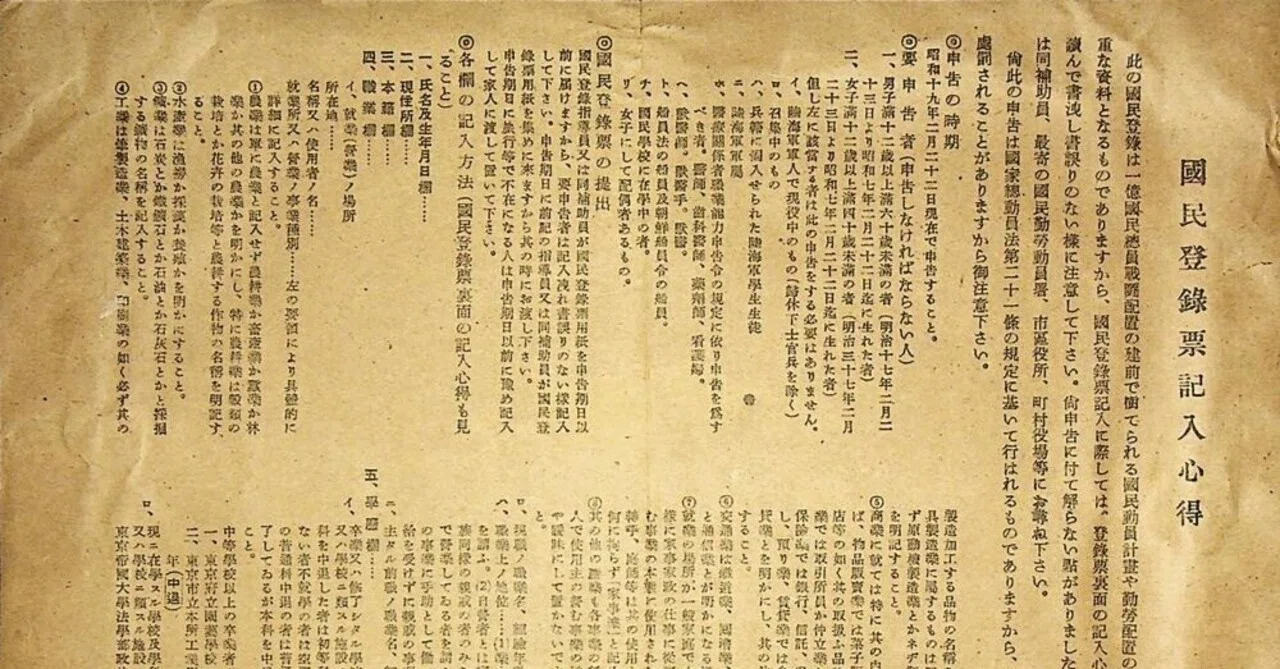 國民登錄票記入心得
此の國民登錄は一億國民總員戰鬪配置の建前で樹てられる國民動員計畫や勤勞配置の
重な資料となるものでありますから、國民登錄票記入に際しては、登錄票裏面の記入心
讀んで書洩し書誤りのない樣に注意して下さい。尙申告に付て解らない點がありました
は同補助員、最寄の國民勤勞動員署、市區役所、町村役場等にお尋ね下さい。
尙此の申告は國家總動員法第二十一條の規定に基いて行はれるものでありますから、
處罰されることがありますから御注意下さい。
◎申告の時期
昭和十九年二月二十二日現在で申告すること。
◎要申告者(申告しなければならない人)
一、男子滿十二歲以上滿六十歲未滿の者(明治十七年二月二
十三日より昭和七年二月二十二日迄に生れた者)
二、女子滿十二歲以上滿四十歲未滿の者(明治三十七年二月
二十三日より昭和七年二月二十二日迄に生れた者)
但し左に該當する者は此の申告をする必要はありません。
イ、陸海軍軍人で現役中のもの(歸休下士官兵を除く)
ロ、召集中のもの
ハ、兵籍に編入せられた陸海軍學生生徒
ニ、陸海軍軍屬
ホ、醫療關係者職業能力申告令の規定に依り申告を爲す
べき者。醫師、齒科醫師、藥劑師、看護婦。
ヘ、獸醫師。獸醫手。
ト、船員法の船員及朝鮮船員令の船員。
チ、國民學校に在學中の者。
リ、女子にして配偶者あるもの。
◎國民登錄票の提出
國民登錄指導員又は同補助員が國民登錄票用紙を申告期日以
前に屆けますから、要申告者は記入洩れ書誤りのない樣記入
して下さい。申告期日に前記の指導員又は同補助員が國民登
錄票用紙を集めに來ますから其の時にお渡し下さい。
申告期日に旅行等で不在になる人は申告期日以前に豫め記入
して家人に渡して置いて下さい。
◎各欄の記入方法(國民登錄票裏面の記入心得も見
ること)
一、氏名及生年月日欄……
二、現住所欄……
三、本籍欄……
四、職業欄……
イ、就業(營業)ノ場所
名稱又ハ使用者ノ名……
所在地……
就業所又ハ營業ノ事業種別……左の要領により具體的に
詳細に記入すること。
①農業は單に農業と記入せず農耕業か畜產業か蠶業か林
業か其の他の農業かを明かにし、特に農耕業は穀類の
栽培とか花卉の栽培等と農耕する作物の名稱を明記す
ること。
②水產業は漁撈か採藻か養殖かを明かにすること。
③鑛業は石炭とか鐵鑛石とか石油とか石灰石とかと採掘
する鑛物の名稱を記入すること。
④工業は紡織製造業、土木建築業、印刷業の如く必ず其の
製造加工する品物の名稱
具製造業に屬するものは
ず原動機製造業とかネヂ
を明記すること。
⑤商業に就ては特に其の內
ば、物品販賣業では菓子
店等の如く其の取扱ふ品
業では取引所員か仲立業
保險業では銀行、信託、
し、預り業、賃貸業では
貸業とを明かにし、其の
すること。
⑥交通業は鐵道業、回漕業
と通信業とが明かになる
⑦就業の場所が一般家庭で
樣に家事家政の仕事に從
む事業の本業に使用され
轉手、庭師等は其の使用
何に拘らず、
⑧其の他の職業も各事業の
人で使用主の營む事業の
や曖昧にして置かないで
と。
ロ、現職ノ職業名、經驗年
ハ、職業上ノ地位……(1)業
を謂ふ。(2)日營者とは
族同樣の親戚の者のみ
で營業してゐる者を謂
の事業に手助として働
給を受けずに親戚の事
ニ、主タル前職ノ職業名、
五、學歷欄……
イ、卒業又ハ修了シタル學
又ハ學校ニ類スル施設
科を中退した者は初等
ない者不就學の者は空
の普通科中退の者は普
了してゐるが本科を中
こと。
中等學校以上の卒業者
一、東京府立園藝學校
二、東京市立本所工業
年(中退)
ロ、現ニ在學スル學校及學
又ハ學校ニ類スル施設
東京帝國大學法學部政治